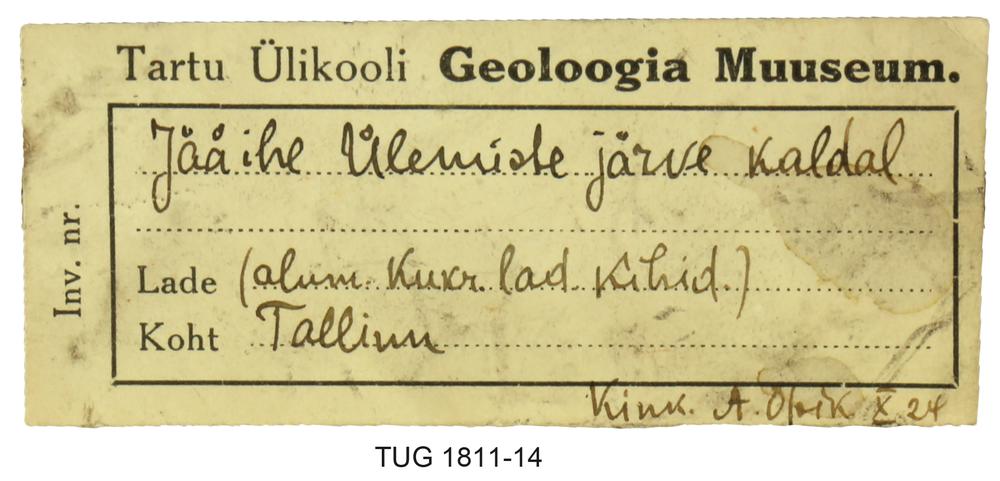 Tartu Ülikooli Geoloogia Muuseum.
Inv. nr.
Jääihe Ülemiste järve kaldal
Lade (alum. Kukr. lad. Kihid.)
Koht Tallinn
Kink. A. Öpik X 24
TUG 1811-14